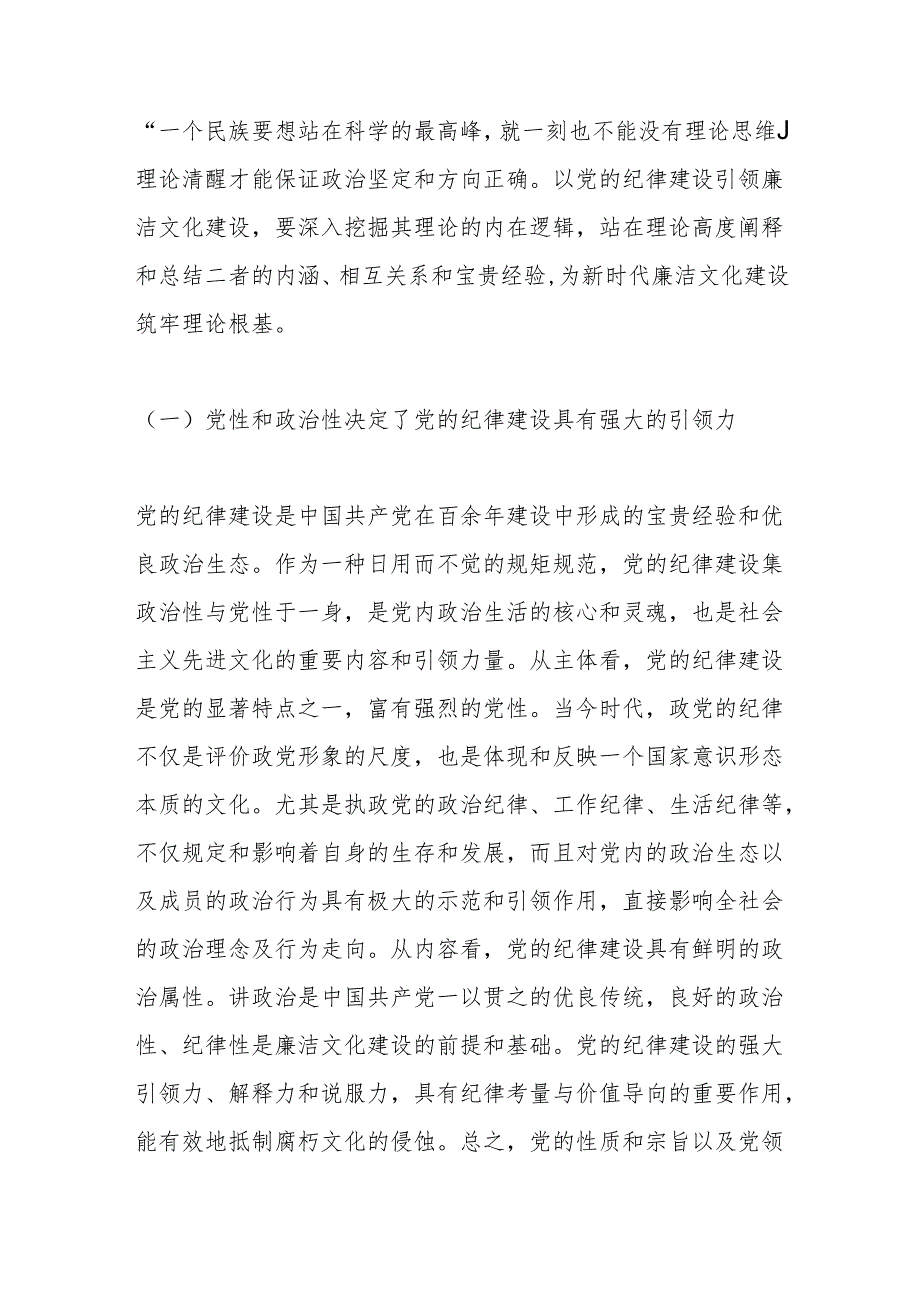 “一个民族要想站在科学的最高峰，就一刻也不能没有理论思维J
理论清醒才能保证政治坚定和方向正确。以党的纪律建设引领廉
洁文化建设，要深入挖掘其理论的内在逻辑，站在理论高度阐释
和总结二者的内涵、相互关系和宝贵经验,为新时代廉洁文化建设
筑牢理论根基。
（一）党性和政治性决定了党的纪律建设具有强大的引领力
党的纪律建设是中国共产党在百余年建设中形成的宝贵经验和优
良政治生态。作为一种日用而不觉的规矩规范，党的纪律建设集
政治性与党性于一身，是党内政治生活的核心和灵魂，也是社会
主义先进文化的重要内容和引领力量。从主体看，党的纪律建设
是党的显著特点之一，富有强烈的党性。当今时代，政党的纪律
不仅是评价政党形象的尺度，也是体现和反映一个国家意识形态
本质的文化。尤其是执政党的政治纪律、工作纪律、生活纪律等，
不仅规定和影响着自身的生存和发展，而且对党内的政治生态以
及成员的政治行为具有极大的示范和引领作用，直接影响全社会
的政治理念及行为走向。从内容看，党的纪律建设具有鲜明的政
治属性。讲政治是中国共产党一以贯之的优良传统，良好的政治
性、纪律性是廉洁文化建设的前提和基础。党的纪律建设的强大
引领力、解释力和说服力，具有纪律考量与价值导向的重要作用，
能有效地抵制腐朽文化的侵蚀。总之，党的性质和宗旨以及党领